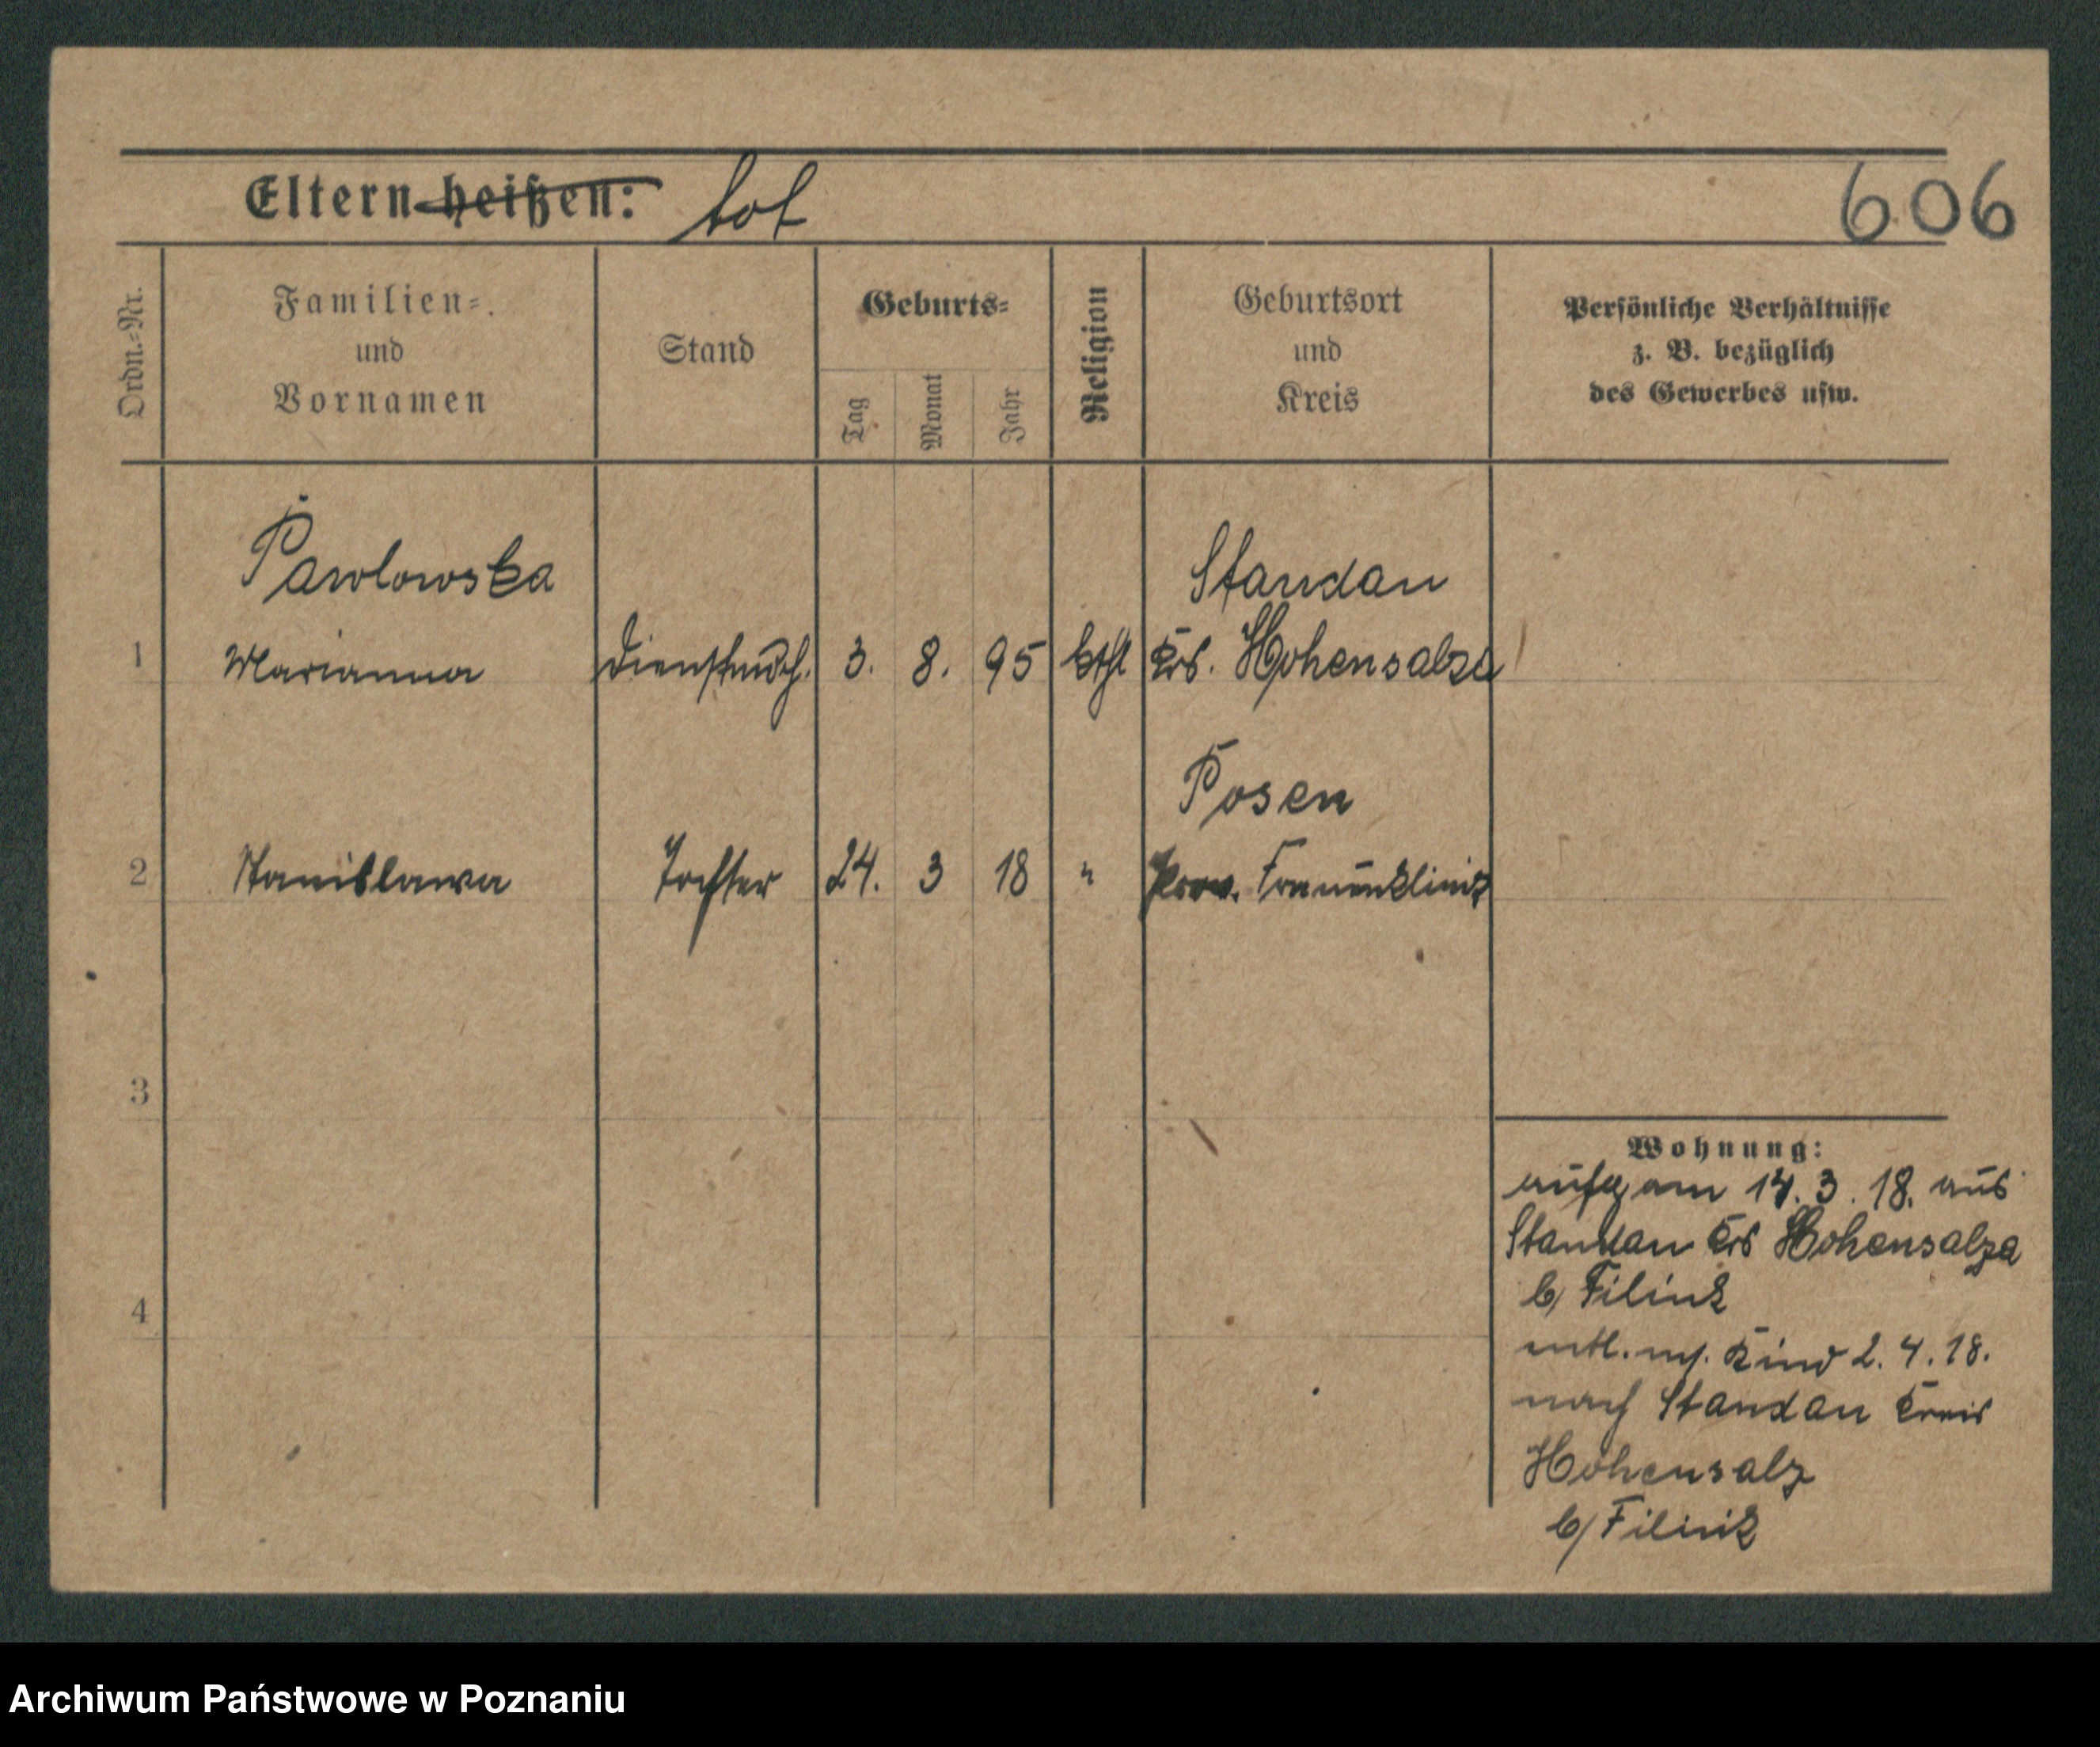 Eltern heißen: tot
606
Ordn.-Nr.
Familien-
und
Vornamen
Stand
Geburts-
Tag
Monat
Jahr
Religion
Geburtsort
und
Kreis
Persönliche Verhältnisse
z. B. bezüglich
des Gewerbes usw.
Pawlowska
Standau
1 Marianna Dienstmdch. 3. 8. 95 kthl Krs. Hohensalza
Posen
2 Stanislawa Tochter 24. 3 18 " Prov. Frauenklinik
3
4
Wohnung:
aufg am 14. 3. 18. aus
Standau Krs Hohensalza
b/ Filink
entl. m. Kind 2. 4. 18.
nach Standau Kreis
Hohensalz
b/ Filink
Archiwum Państwowe w Poznaniu